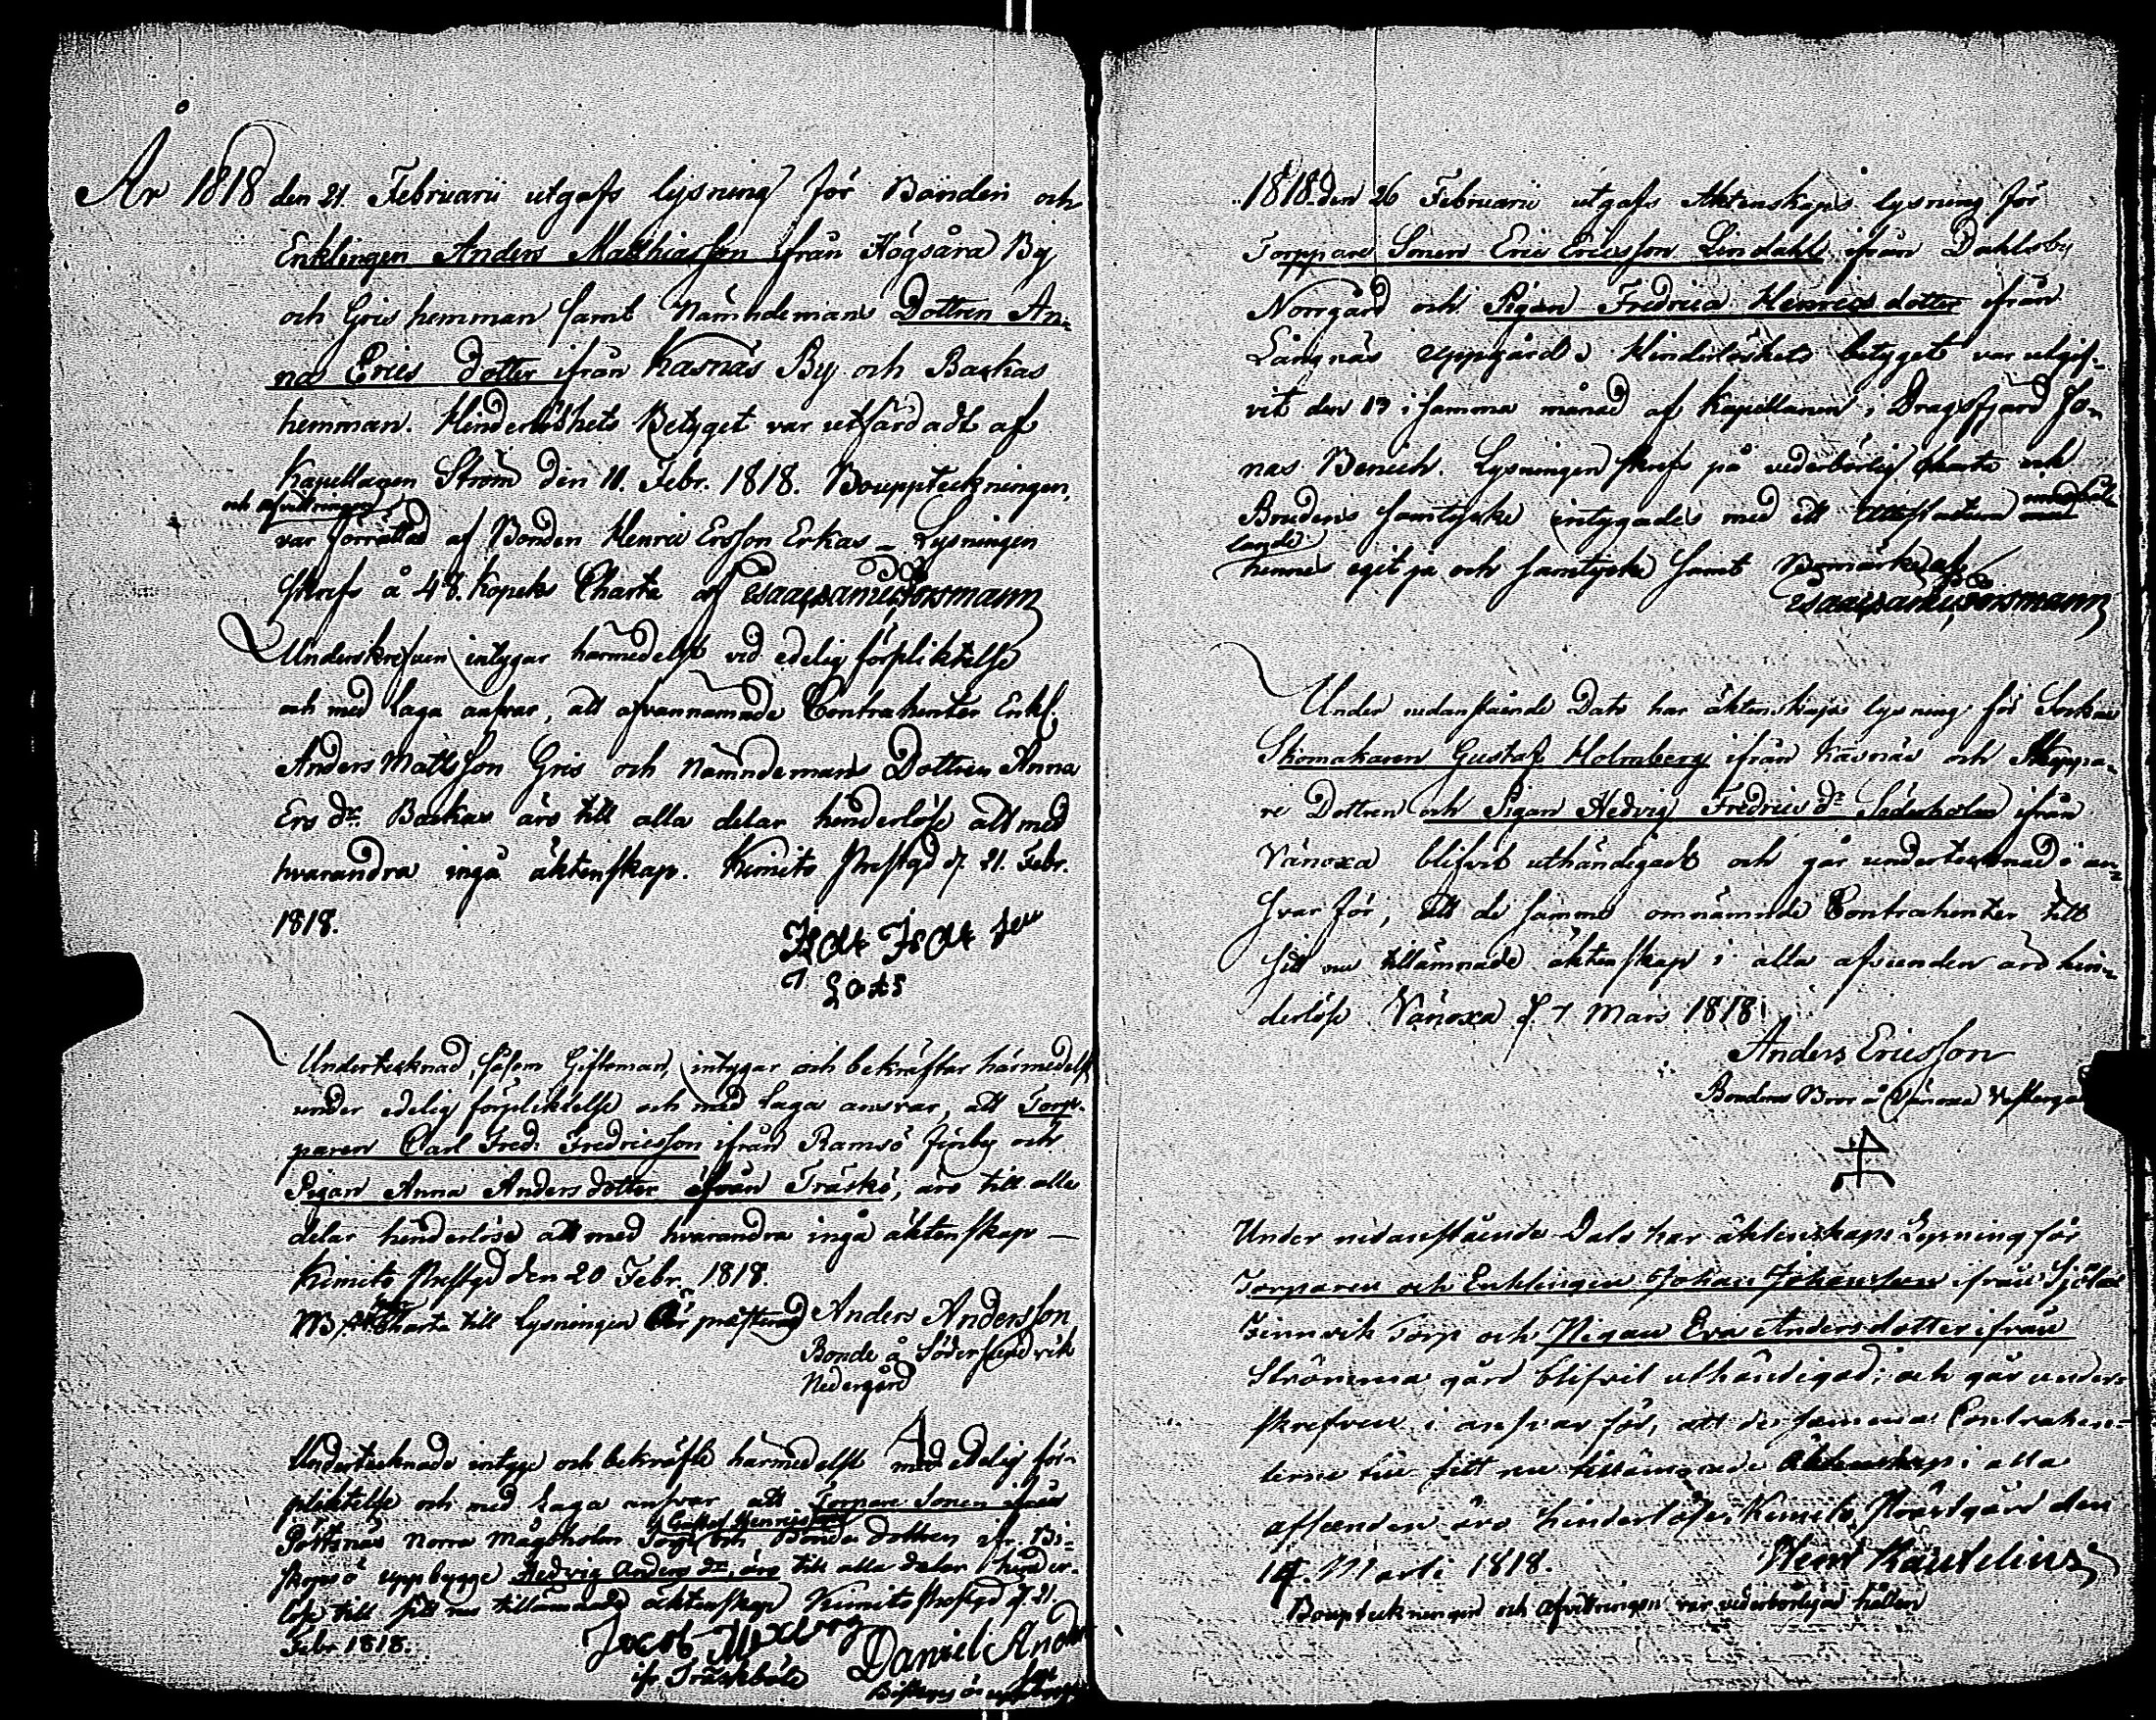 År 1818 den 21. Februarii utgafs lysning för Bonden och
Enklingen Anders Matthiasson ifrån Högsåra By
och Gris hemman samt Nämndemans Dottren An-
na Erics dotter ifrån Kasnäs By och Backas
hemman. Hinderlöshets Betyget var utfärdadt af
Kapellanen Ström den 11. Febr. 1818. Bouppteckningen,
och afvittringen
var förrättad af Bonden Henric Ersson Erkas – Lysningen
skrefs å 47. Kopeks Charta af
Underskrefven intygar härmedelst vid edelig förpliktelse
och med laga ansvar, att ofvannämnde Contrahenter Enkl.
Anders Matsson Gris och Nämndemans Dottren Anna
Ers dr. Backas äro till alla delar hinderlöse att med
hvarandra ingå äktenskap. Kimito Prestgd d. 21. Febr.
1818.
Undertecknad, såsom Giftoman, intygar och bekräftar härmedelst
under edelig förpliktelse och med laga ansvar, att Torp-
paren Carl Fred. Fredricsson ifrån Ramsö Finby och
Pigan Anna Anders dotter ifrån Träskö, äro till alla
delar hinderlöse att med hvarandra ingå äktenskap —
Kimito Prestgd den 20 Febr. 1818.
NB Charta till Lysningen är præsterad Anders Andersson
Bonde å Södersundvik
Nedergård
Undertecknade intyga och bekräfta härmedelst med edelig för-
pliktelse och med laga ansvar att Torpare Sonen ifrån
Gustaf Henricsson
Pöttsnäs Norra Mågsholm Torp och Bonde dottren ifr. Bi-
skopsö uppbygge Hedvig Anders dr, äro till alla delar hinder-
löse till sitt nu tillämnade äktenskap Kimito Prestgd d. 21.
Febr 1818.
ifr Träskböle Daniel Anders
1818 den 26 Februarii utgafs Äktenskaps lysning för
Torppare Sonen Eric Ericsson Lindahl ifrån Dahlsby
Norrgård och Pigan Fredrica Henrics dotter ifrån
Långnäs Uppgård. Hinderlöshets betyget var utgif-
vit den 13 i samma månad af Kapellanen i Dragsfjärd Jo-
nas Benich. Lysningen skrefs på vederbörlig Charta och
Brudens samtycke intygades med ett Attestatum innehål-
lande
hennes egit ja och samtycke samt Bomärke af
Under nedanstående Dato har äktenskaps lysning för Sockne
Skomakaren Gustaf Holmberg ifrån Kasnäs och Skeppa-
re Dottren och Pigan Hedvig Fredrics dr Söderholm ifrån
Vänoxa blifvit uthändigad och går undertecknad i an-
svar för, att de samme omnämnde Contrahenter till
sitt nu tillämnade äktenskap i alla afseenden äro hin-
derlöse. Vänoxa d. 7 Mars 1818.
Anders Ericsson
Brudens Bror å Vänoxa Vestergå
Under nedanstående Dato har äktenskaps Lysning för
Torparen och Enklingen Johan Johansson ifrån Sjölax
Finnvik Torp och Pigan Eva Andersdotter ifrån
Strömma gård blifvit uthändigad; och går under-
skrefven i ansvar för, att de samma Contrahen-
terne till sitt nu tillämnade Äktenskap i alla
afseenden äro hinderlöse. Kimito Prästgård den
14. Martii 1818. Henr Kautelius
Bouppteckningen och afvittringen var vederbörligen hållen